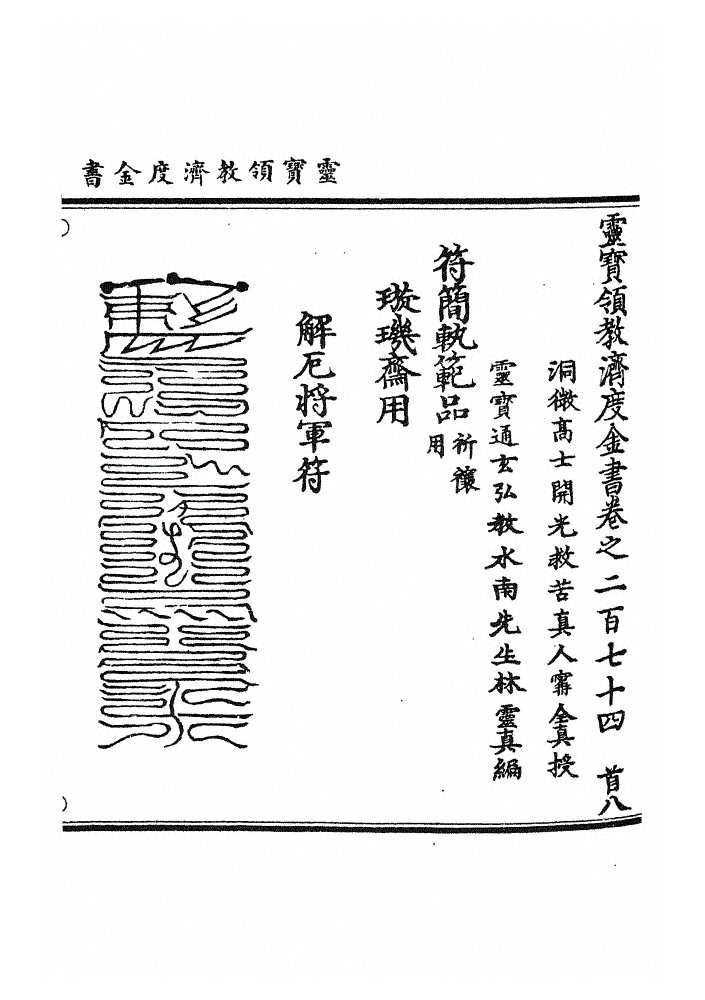 靈寶領教濟度金書
靈寶領教濟度金書卷之二百七十四 首八
洞微高士開光救苦真人甯全真授
靈寶通玄弘教水南先生林靈真編
符簡軌範品祈禳用
璇璣齋用
解厄將軍符